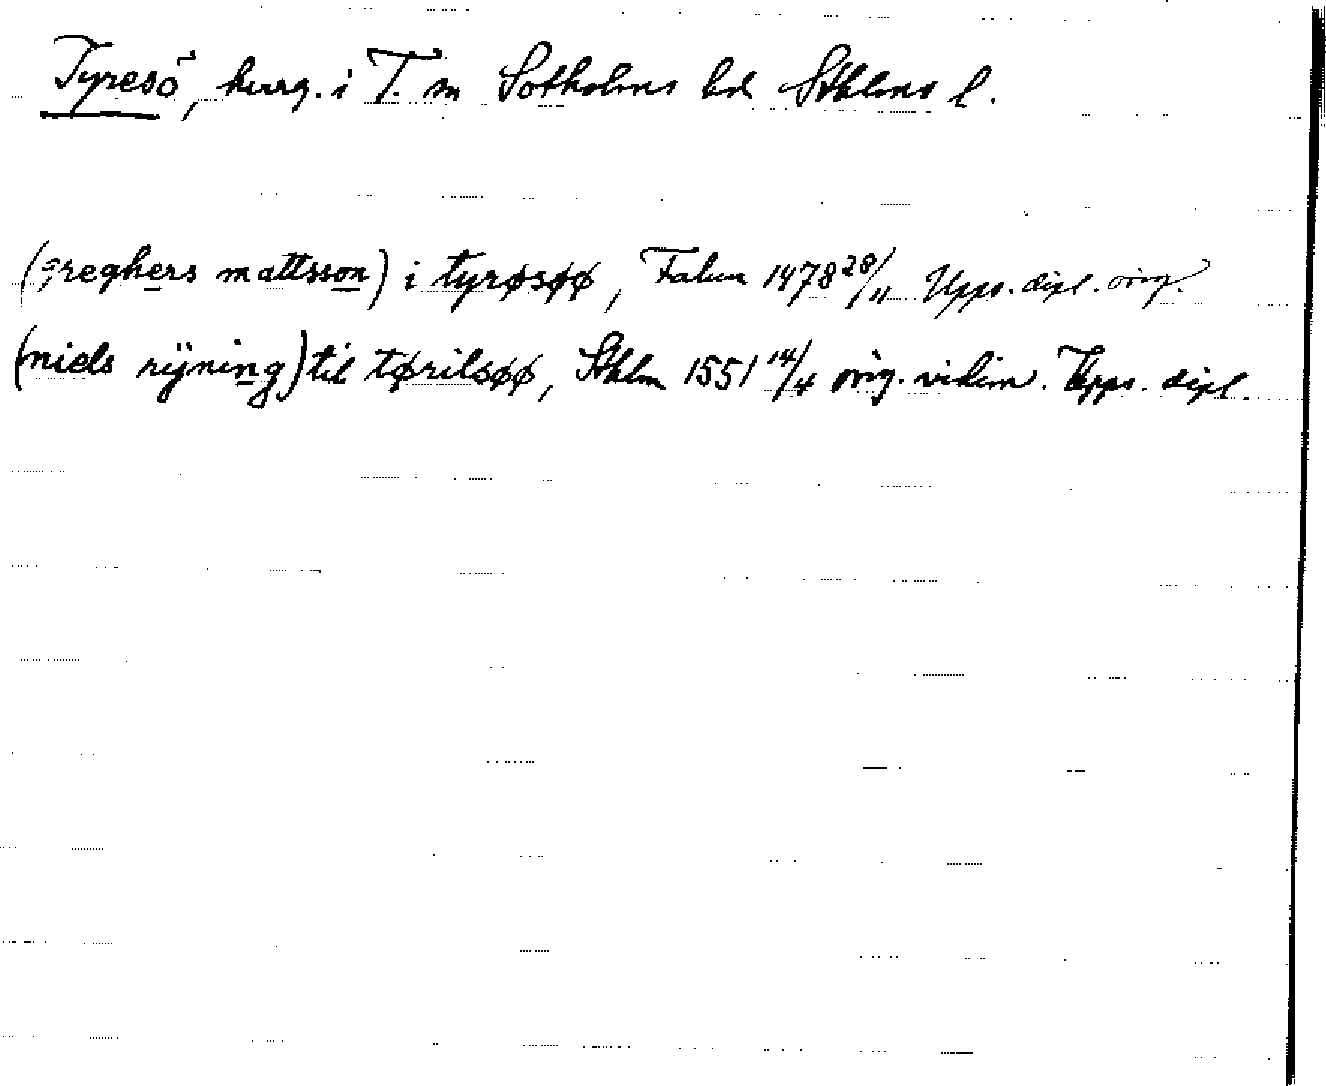 Tyresö, herrg. i T. sn Sotholms hd Sthlms l.
(greghers mattsson) i tyrøsøø, Falun 1478 28/11 Upps. dipl. orig.
(niels rijning) til tørilsøø, Sthlm 1551 14/4 orig. vidim. Upps. dipl.